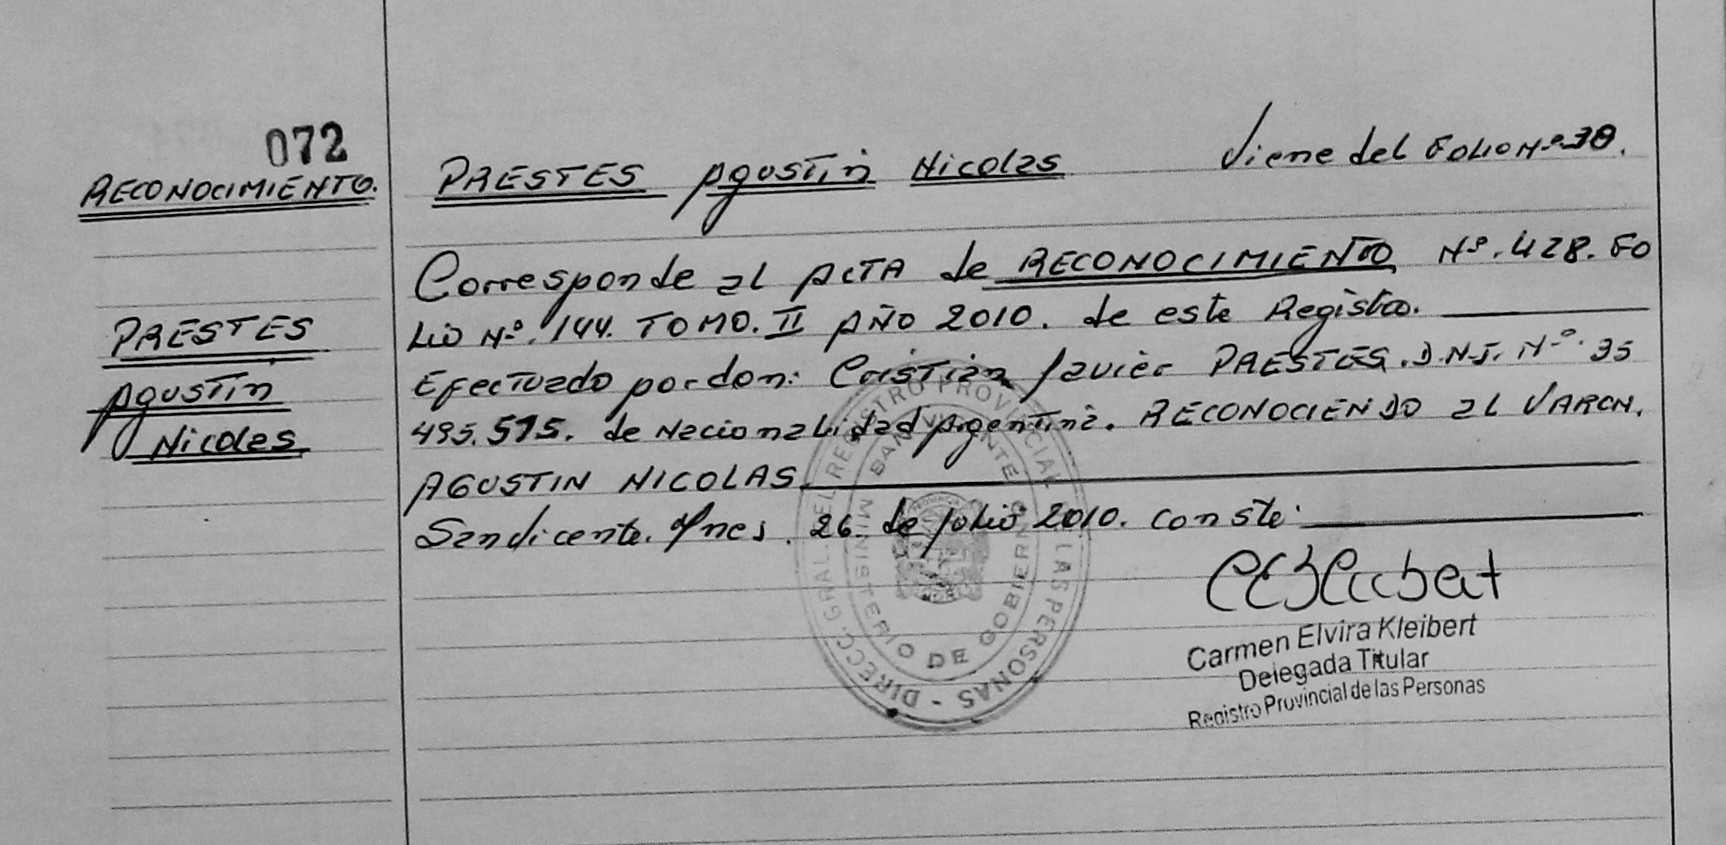 072
RECONOCIMIENTO.
PRESTES
Agustin
Nicolas
PRESTES Agustin Nicolas Viene del Folio Nº 38.
Corresponde al ACTA de RECONOCIMIENTO Nº. 428. FO
LIO Nº. 144. TOMO. II AÑO 2010. de este Registro.
Efectuado por don: Cristian Javier PRESTES. D.N.I. Nº. 35
495.515. de Nacionalidad Argentina. RECONOCIENDO al VARON.
AGUSTIN NICOLAS.
San Vicente. Mnes. 26. de Julio 2010. conste.
DIRECC. GRAL. DEL REGISTRO PROVINCIAL DE LAS PERSONAS -
MINISTERIO DE GOBIERNO
SAN VICENTE
Carmen Elvira Kleibert
Delegada Titular
Registro Provincial de las Personas